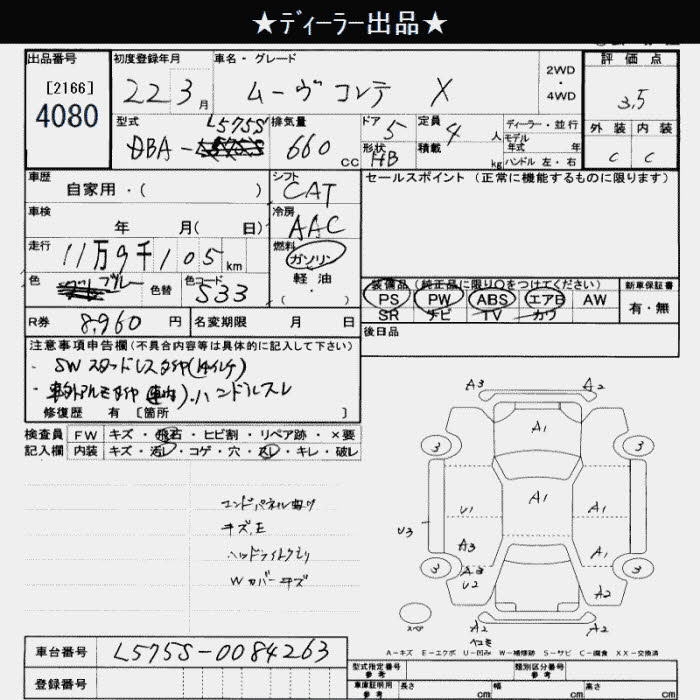 ★ディーラー出品★
出品番号 初度登録年月 車名・グレード 2WD・4WD 評価点
[2166] 4080 22 3月 ムーヴコンテ X 3.5
型式 排気量 ドア 定員 ディーラー・並行 外装 内装
DBA- L575S 660 cc 5 4人 モデル年式 年 C C
形状 HB 積載 kg ハンドル 左・右
車歴 シフト セールスポイント(正常に機能するものに限ります)
自家用・( ) CAT
車検 冷房
年 月( 日) AAC
走行 燃料
11万9千105km ガソリン
色 色替 色コード 軽油 装備品(純正品に限り○をつけてください) 新車保証書
ブルー 533 ・( ) PS PW ABS エアB AW 有・無
SR ナビ TV カワ
R券 8,960円 名変期限 月 日 後日品
注意事項申告欄(不具合内容等は具体的に記入して下さい)
・SWスタッドレスタイヤ
・ハンドルスレ
修復歴 有 [箇所 ]
検査員 FW キズ・飛石・ヒビ割・リペア跡・×要
記入欄 内装 キズ・汚レ・コゲ・穴・スレ・キレ・破レ
キズ、E
ヘッドライトクモリ
Wカバーキズ
A3 A2
A1
3 3
A1
U1 A1
U3
A3 A1
3 A3 3
U2 A2
スペア
A2 A2
A-キズ E-エクボ U-凹み W-補修跡 S-サビ C-腐食 XX-交換済
車台番号 L575S-0084263
型式指定番号 参考 類別区分番号 参考
登録番号 車庫証明用 参考 長さ cm 幅 cm 高さ cm